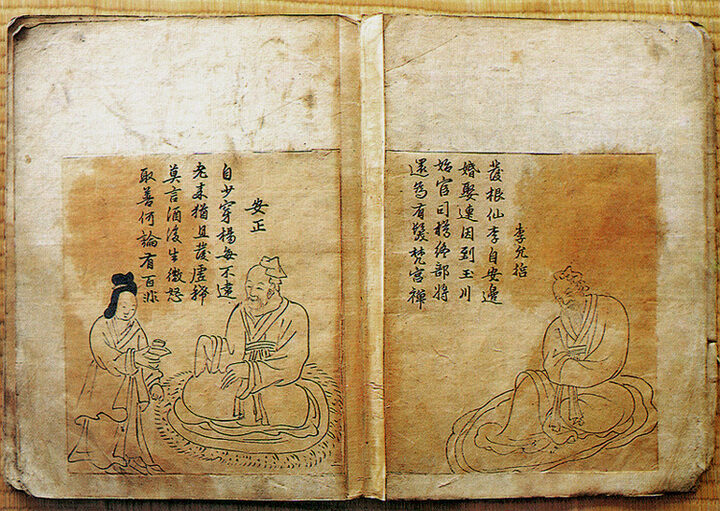 李允
發根仙李自安邊
婚娶連因到玉川
始官司終部將
還爲有髮梵宮禪
安正
自少穿楊每不違
老來猶且發虛
莫言酒後生微怒
取善何論有百非